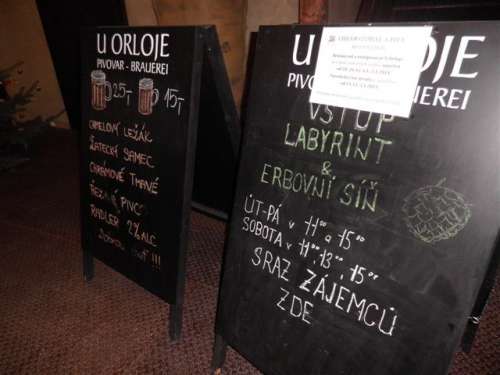 U ORLOJE
PIVOVAR - BRAUEREI
25,- 15,-
CHMELOVÝ LEŽÁK
ŽATECKÝ SAMEC
CHRÁMOVÉ TMAVÉ
ŘEZANÉ PIVO
RADLER 2% ALC
U ORLOJE
PIVOVAR - BRAUEREI
VSTUP
LABYRINT
&
ERBOVNÍ SÍŇ
ÚT-PÁ V 11⁰⁰ a 15⁰⁰
SOBOTA V 11⁰⁰, 13⁰⁰, 15⁰⁰
SRAZ ZÁJEMCŮ
ZDE